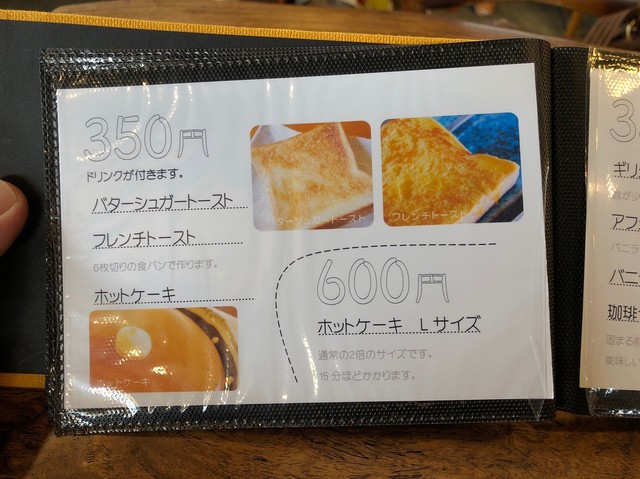 350円
ドリンクが付きます。
バターシュガートースト
フレンチトースト
6枚切りの食パンで作ります。
ホットケーキ
ホットケーキ
バターシュガートースト
フレンチトースト
600円
ホットケーキ Lサイズ
通常の2倍のサイズです。
15分ほどかかります。
3
ギリ
アフ
バニラ
バニ
珈琲
固まる前
美味しい